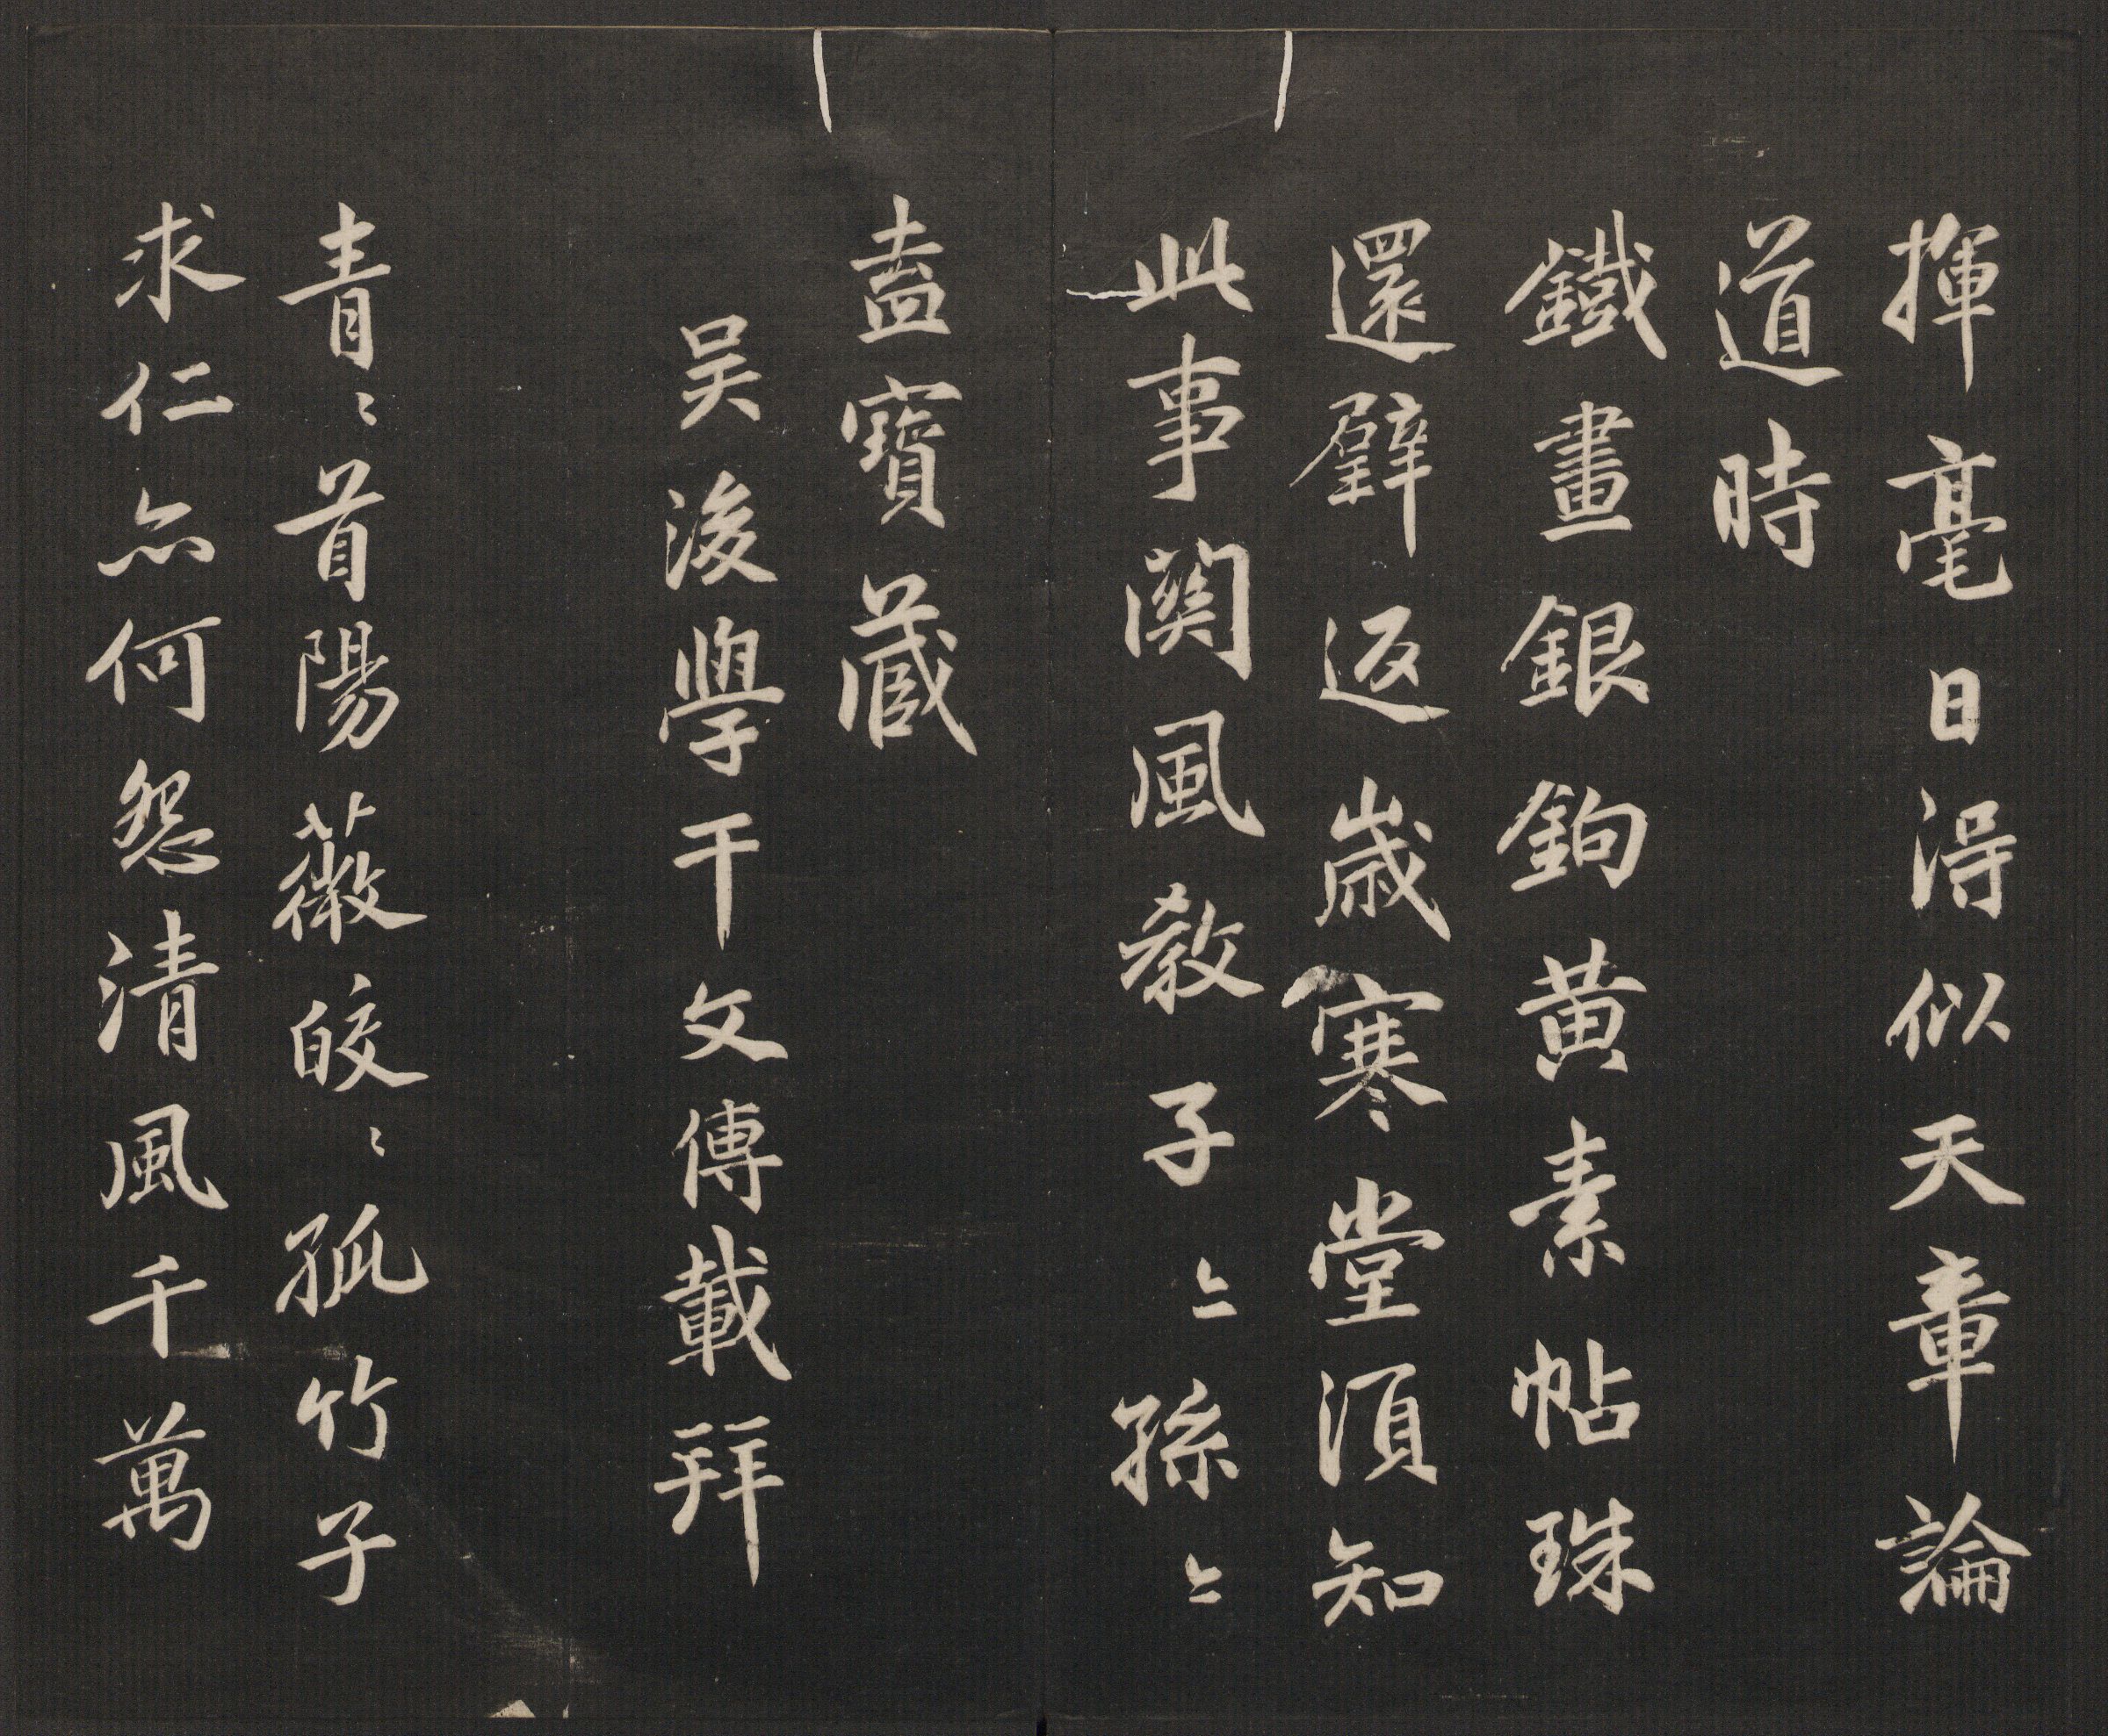 揮毫日得似天章論
道時
鐵畫銀鉤黄素帖珠
還璧返歲寒堂須知
此事関風教子〻孫〻
盍寶藏
吴後學干文傳載拜
青〻首陽薇皎〻孤竹子
求仁亦何怨清風千萬